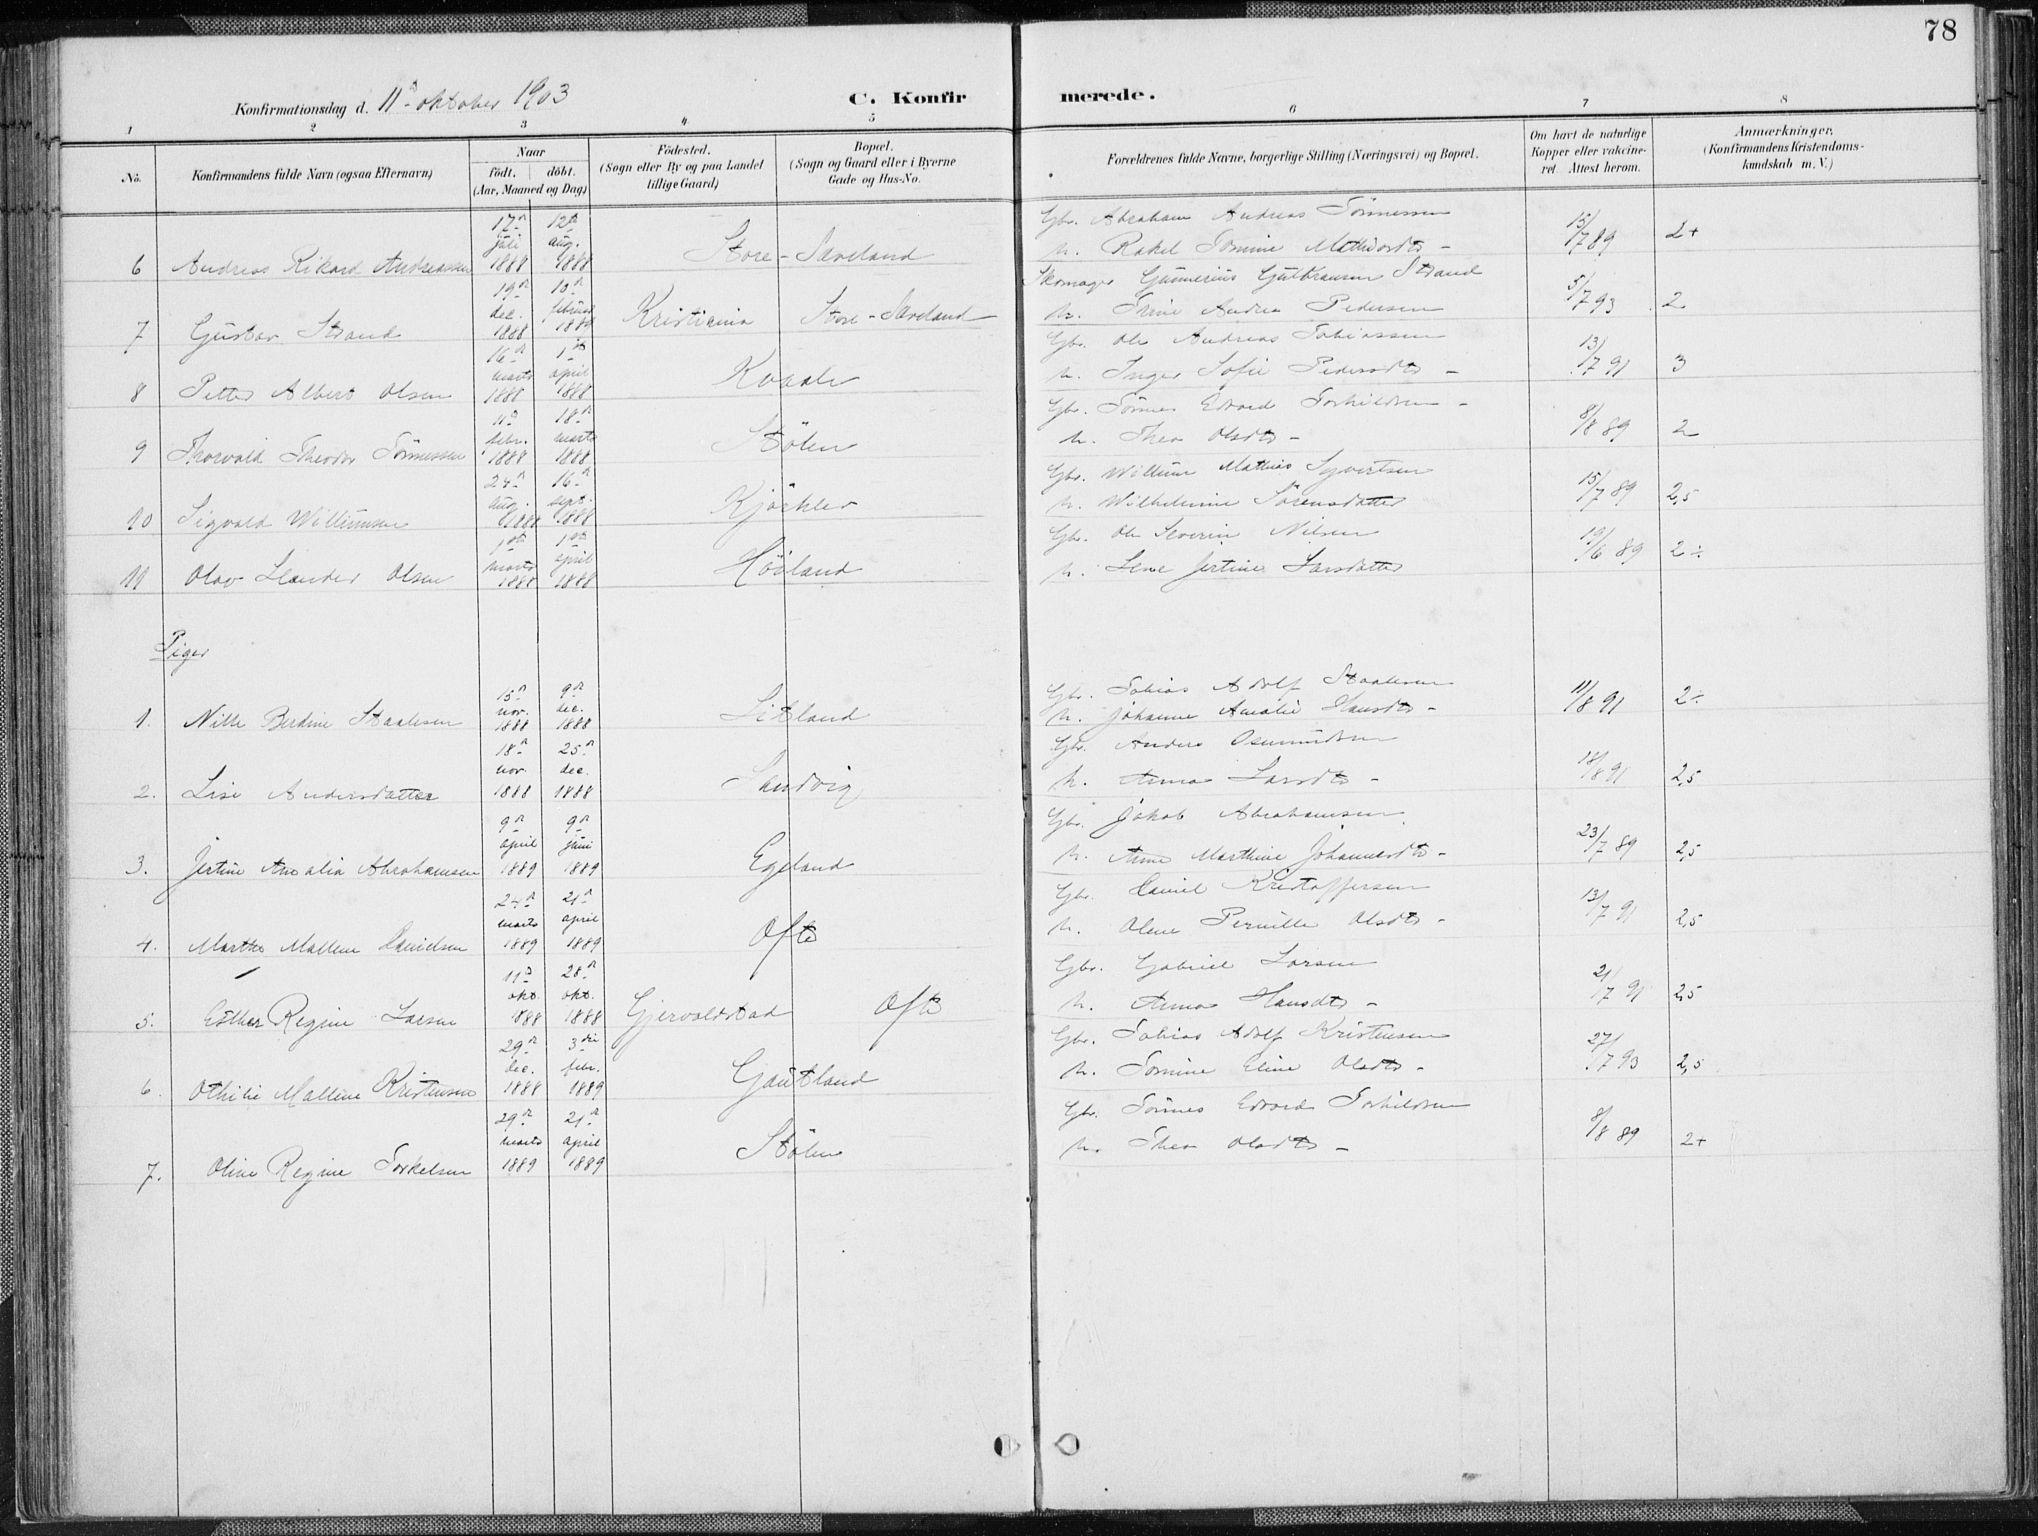 78
Konfirmationsdag d. 11. oktober 1903
C. Konfirmerede.
1 2 3 4 5 6 7 8
No.
Konfirmandens fulde Navn (ogsaa Efternavn)
Naar
födt. döbt.
(Aar, Maaned og Dag)
Födested.
(Sogn eller By og paa Landet
tillige Gaard)
Bopæl.
(Sogn og Gaard eller i Byerne
Gade og Hus-No.
Forældrenes fulde Navne, borgerlige Stilling (Næringsvei) og Bopæl.
Om havt de naturlige
Kopper eller vakcine-
ret. Attest herom.
Anmærkninger,
(Konfirmandens Kristendoms-
kundskab m. V.)
6 Andreas Rikard Andreassen 17. juli 1888 12. aug. 1888 Store-Saveland
Gbr. Abraham Andreas Tönnessen
h. Rakel Tomine - 15/7 89 2+
7 Gustav Strand 19. dec. 1888 10. februar Kristiania Store-Saveland
Skomager Gunnerius Gulbransen Strand
h. Trine Andrea Pedersen 5/7 93 2
8 Petter Albert Olsen 16. marts 1888 1. april 1888 Kvaale
Gbr. Ole Andreas Tobiassen
h. Inger Sofie Pedersdtr - 13/7 91 3
9 Thorvald Theodor Tönnessen 11. febr. 1888 18. marts 1888 Stölen
Gbr. Tönnes Edvard Torkildsen -
h. Thea Olsdtr - 8/8 89 2
10 Sigvald Willumsen 24. aug. 1888 16. sept. 1888
Gbr. Willum Mathias Syvertsen
h. Wilhelmine Sörensdatter 15/7 89 2,5
11 Olav Leander Olsen 1. marts 1888 1. april 1888 Höiland
Gbr. Ole Severin Nilsen
h. Lene Jertine Larsdatter 19/6 89 2÷
Piger
1. Nille Berdine Staalesen 15. nov. 1888 9. dec. 1888 Litland
Gbr. Tobias Adolf Staalesen
h. Johanne Amalie Hansdtr - 11/8 91 2÷
2. Lise Andersdatter 18. nov. 1888 25. dec. 1888 Sandvig
Gbr. Anders Osmundsen
h. Anna Larsdtr - 18/8 91 2,5
3. Jertine Amalia Abrahamsen 9. april 1889 9. juni 1889 Egeland
Gbr. Jakob Abrahamsen
h. Anne Marthine Johannesdtr - 23/7 89 2,5
4. Marthe Mallene Danielsen 24. marts 1889 21. april 1889 Ofte
Gbr. Daniel Kristoffersen
h. Olene Pernille Olsdtr - 13/7 91 2,5
5. Esther Regine Larsen 11. okt. 1888 28. okt. 1888 Gjervoldstad Ofte
Gbr. Gabriel Larsen
h. Anna Hansdtr - 21/7 91 2,5
6. Othilie Mallene Kristensen 29. dec. 1888 3die febr. 1889 Gautland
Gbr. Tobias Adolf Kristensen
h. Tomine Eline Olsdtr - 27/7 93 2,5
7. Oline Regine Torkelsen 29. marts 1889 21. april 1889 Stölen
Gbr. Tönnes Edvard Torkildsen
h. Thea Olsdtr - 8/8 89 2+